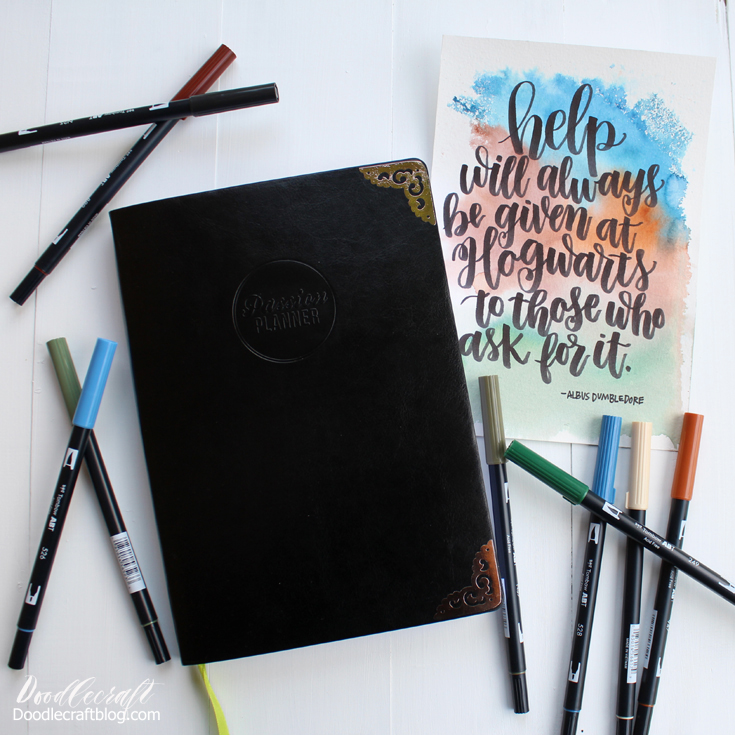 help
will always
be given at
Hogwarts
to those who
ask for it.
-ALBUS DUMBLEDORE
Passion
PLANNER
Tombow ABT
526
Tombow ABT
528
Tombow ABT
249
Doodlecraft
Doodlecraftblog.com